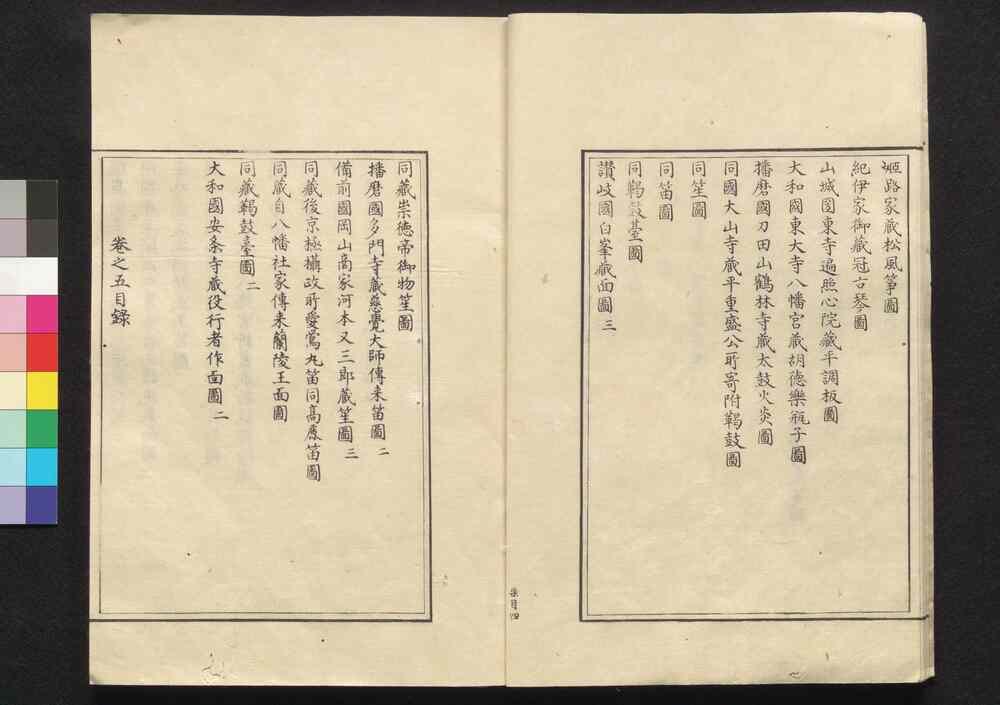 姬路家藏松風箏圖
紀伊家御藏冠古琴圖
山城國東寺遍照心院藏平調板圖
大和國東大寺八幡宮藏胡德樂瓶子圖
播磨國刀田山鶴林寺藏太鼓火炎圖
同國大山寺藏平重盛公所寄附鞨鼓圖
同笙圖
同笛圖
同鞨鼓臺圖
讃岐國白峯藏面圖 三
同藏崇德帝御物笙圖
播磨國多門寺藏慈覺大師傳来笛圖 二
備前國岡山商家河本又三郎藏笙圖 三
同藏後京極攝政所愛鶯丸笛同高麗笛圖
同藏自八幡社家傳来蘭陵王面圖
同藏鞨鼓臺圖 二
大和國安条寺藏役行者作面圖 二
卷之五目錄
集目四